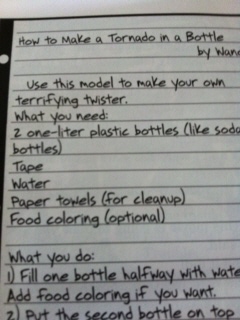 How to Make a Tornado in a Bottle
by
Use this model to make your own
terrifying twister.
What you need:
2 one-liter plastic bottles (like soda
bottles)
Tape
Water
Paper towels (for cleanup)
Food coloring (optional)
What you do:
1) Fill one bottle halfway with
Add food coloring if you want.
2) Put the second bottle on top